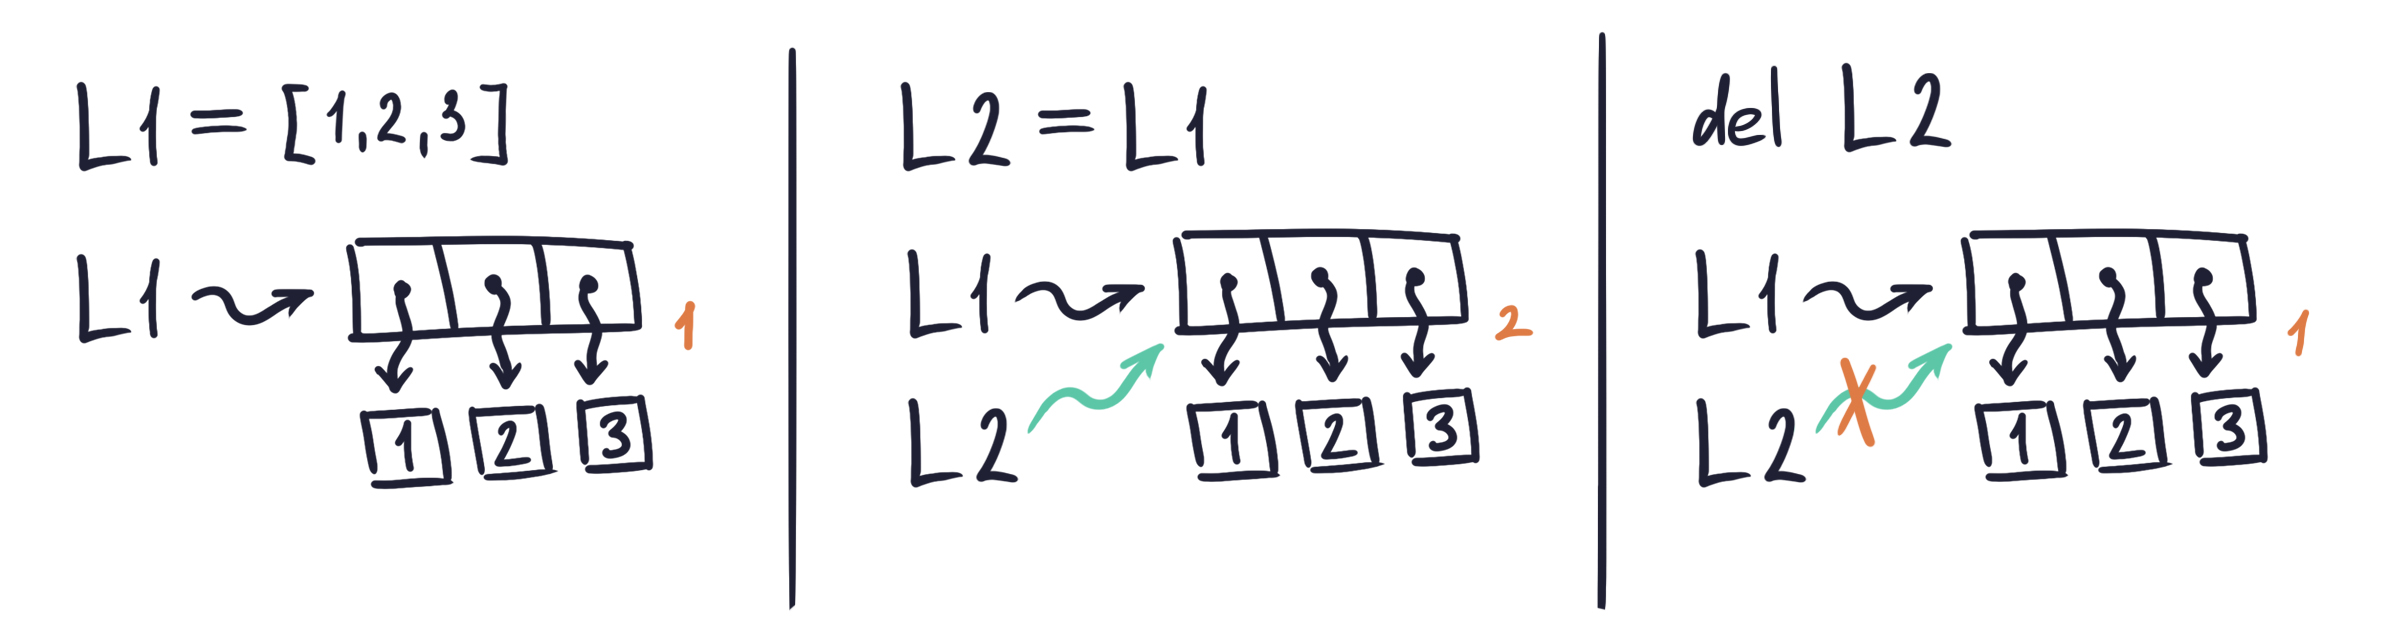 L1 = [1,2,3]
L1
1
1 2 3
L2 = L1
L1
2
L2
1 2 3
del L2
L1
1
L2
1 2 3